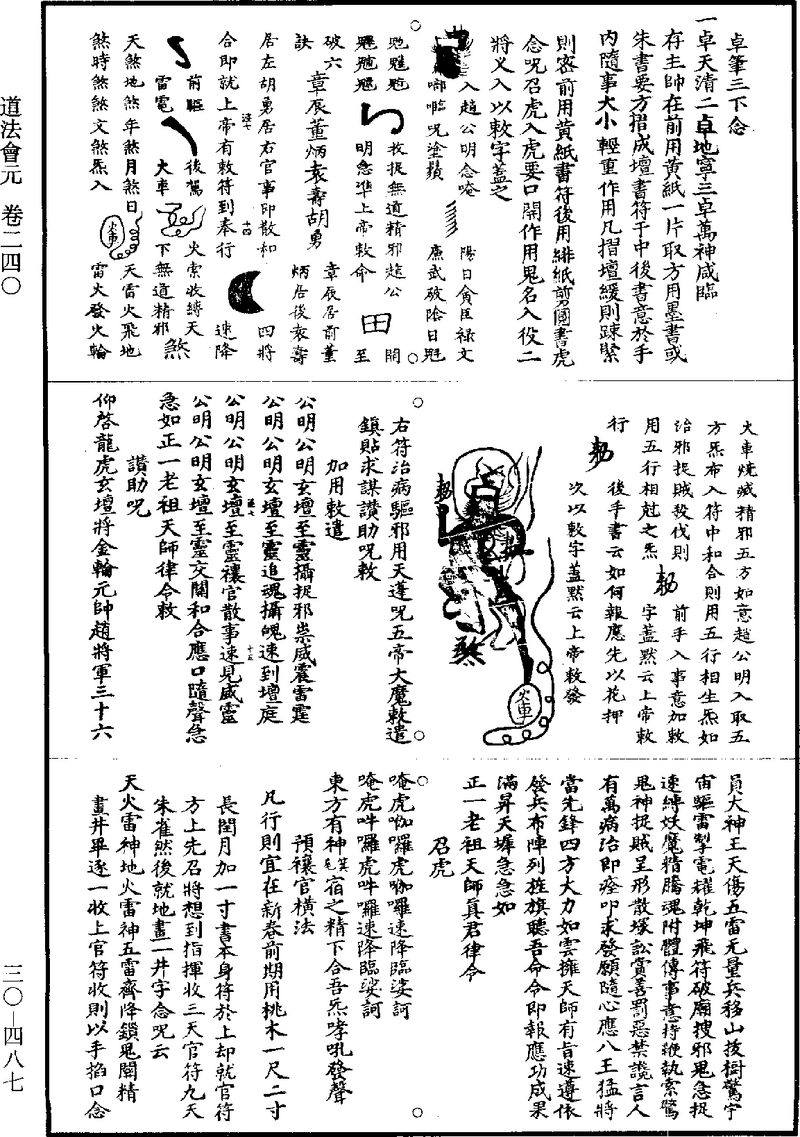 道法會元　卷二四〇
三〇—四八七
卓筆三下念
一卓天清二卓地寧三卓萬神咸臨
存主帥在前用黃紙一片取方用墨書或
朱書要方摺成壇書符于中後書意於手
內隨事大小輕重作用凡摺壇緩則疎緊
則密前用黃紙書符後用緋紙剪圓書虎
念呪召虎入虎要口開作用鬼名入役二
將又入以敕字蓋之
入趙公明念唵
啷啒呪塗鬚
陽日貪巨祿文
廉武破陰日魁
救捉無道精邪趙公
明急準上帝敕命
開
至
破六
章辰董炳袁壽胡勇
訣
章辰居前董
炳居後袁壽
居左胡勇居右官事即散和
合即就上帝有敕符到奉行
四將
速降
前驅
雷電
後駕
火車
火索收縛天
下無道精邪
煞
天煞地煞年煞月煞日
煞時煞煞文煞炁入
火車
天雷火飛地
雷火發火輪
火車燒臧精邪五方如意趙公明入取五
方炁布入符中和合則用五行相生炁如
治邪捉賊發伐則
用五行相尅之炁
敕
前手入事意加敕
字蓋默云上帝敕
行
後手書云如何報應先以花押
敕
次以敕字蓋默云上帝敕發
敕
煞
火車
右符治病驅邪用天蓬呪五帝大魔敕遣
鎮貼求謀讚助呪敕
加用敕遣
公明公明玄壇至靈攝捉邪祟威震雷霆
公明公明玄壇至靈追魂攝魄速到壇庭
公明公明玄壇至靈禳官散事速見威靈
公明公明玄壇至靈交關和合應口隨聲急
急如正一老祖天師律令敕
讚助呪
仰啓龍虎玄壇將金輪元帥趙將軍三十六
員大神王天傷五雷无量兵移山拔樹驚宇
宙驅雷掣電耀乾坤飛符破廟搜邪鬼急捉
速縛妖魔精騰魂附體傳事意持鞭執索驚
鬼神捉賊呈形散塚訟賞善罰惡禁讒言人
有萬病治即痊叩求發願隨心應八王猛將
當先鋒四方大力如雲擁天師有旨速遵依
發兵布陣列旌旗聽吾命令即報應功成果
滿昇天墀急急如
正一老祖天師眞君律令
召虎
唵虎咖囉虎咖囉速降臨娑訶
唵虎吽囉虎吽囉速降臨娑訶
東方有神箕毛宿之精下合吾炁哮吼發聲
預禳官橫法
凡行則宜在新春前期用桃木一尺二寸
長閏月加一寸書本身符於上却就官符
方上先召將想到指揮收三天官符九天
朱雀然後就地畫一井字念呪云
天火雷神地火雷神五雷齊降鎖鬼關精
畫井畢逐一收上官符收則以手掐口念